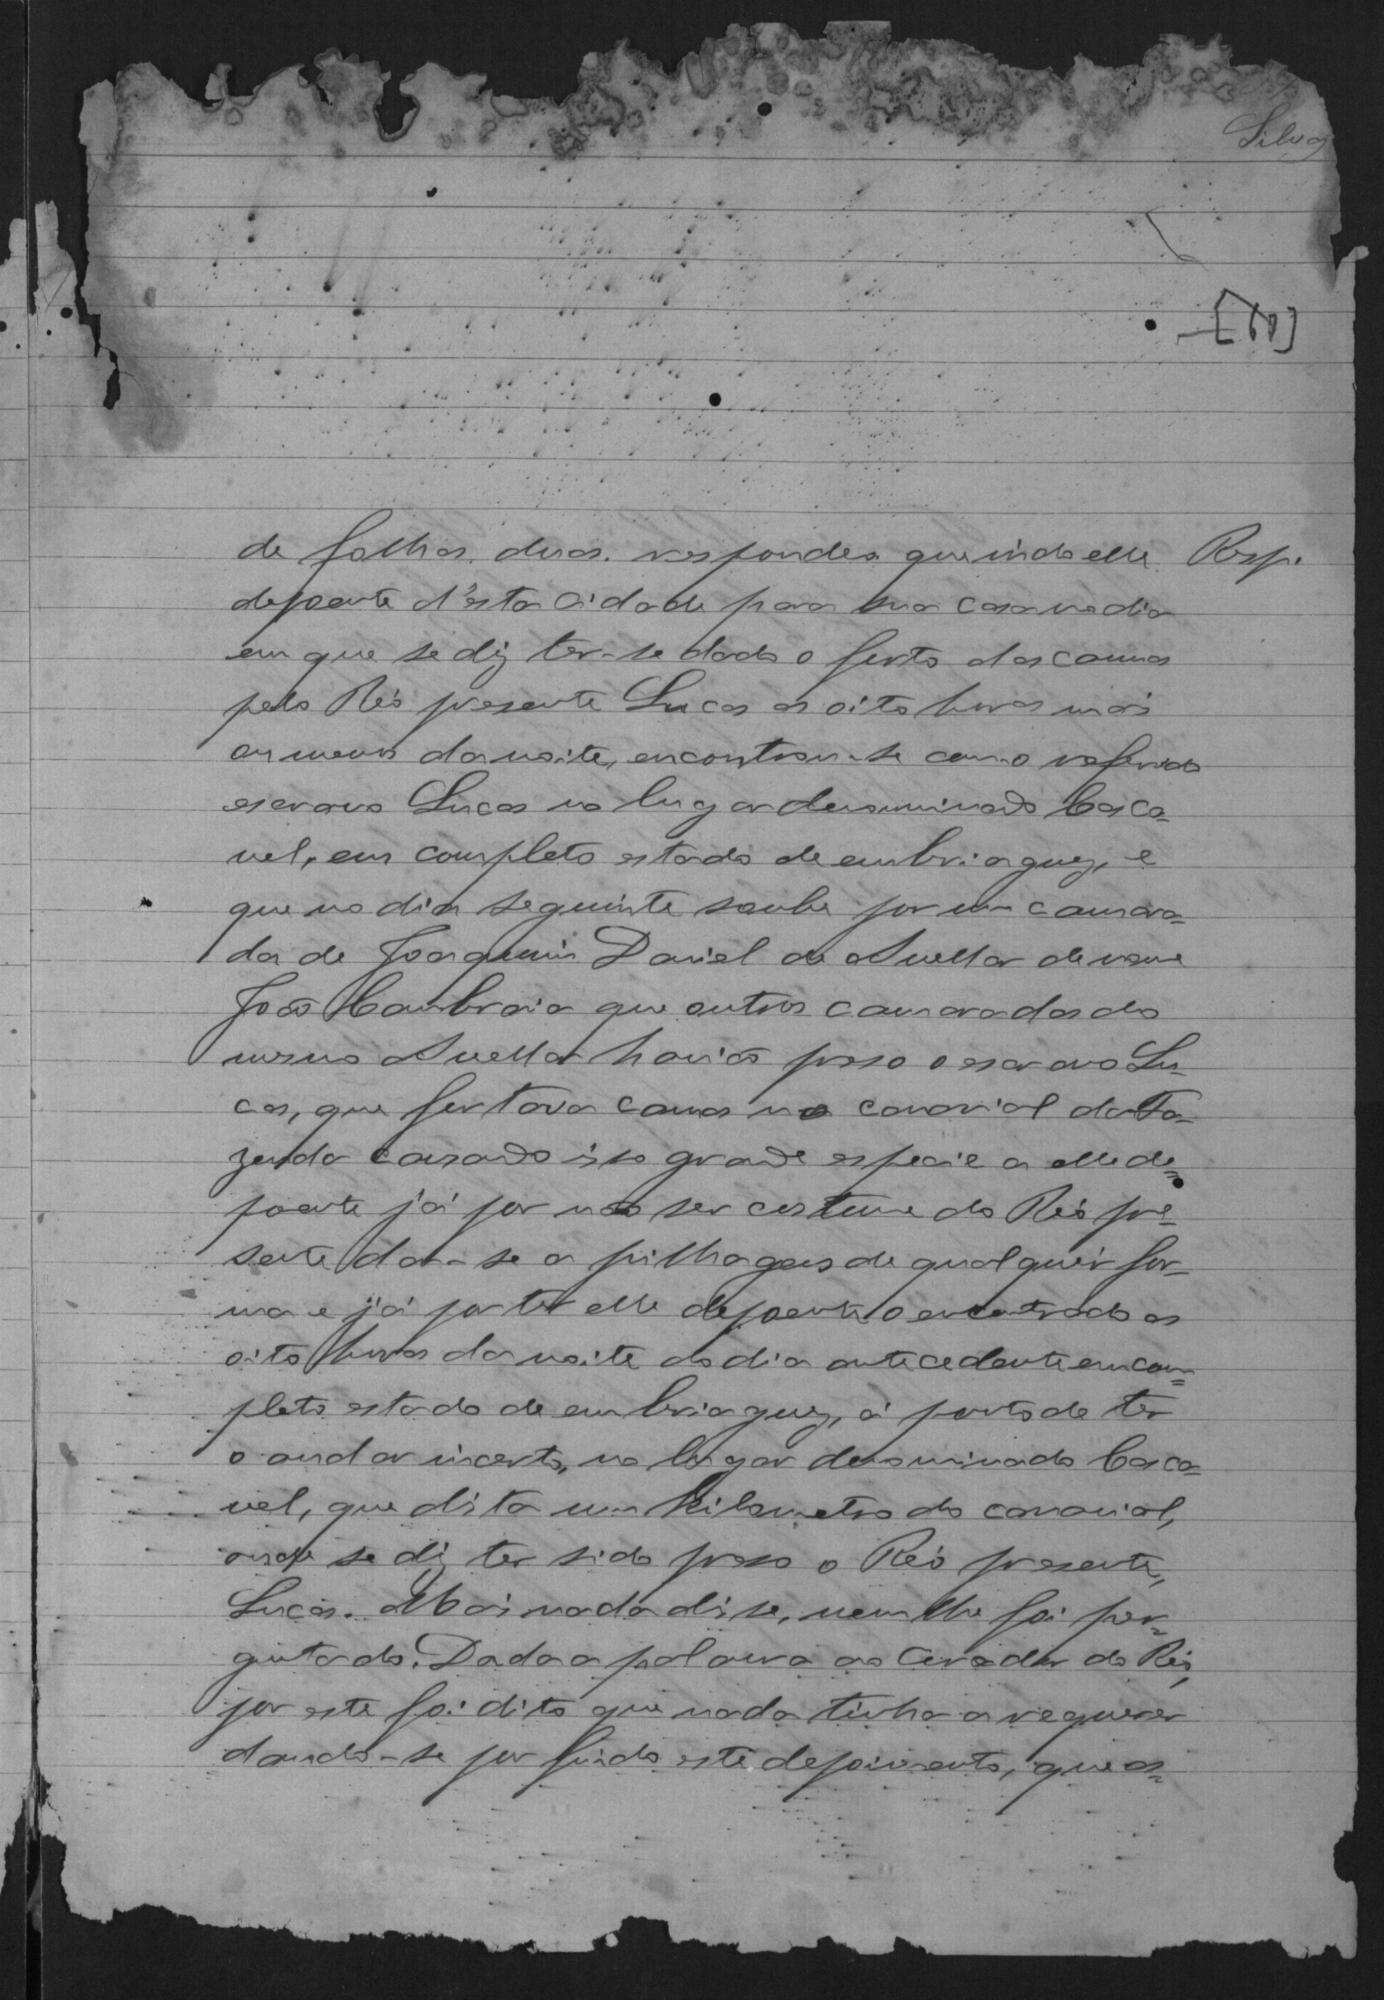 Silva
de folhas duas. respondeo que indo elle Resp.
depoente d'esta Cidade para sua casa no dia
em que se diz ter-se dado o furto das cannas
pelo Réo presente Lucas as oito horas mais
ou menos da noite, encontrou-se com o referido
escravo Lucas no lugar denominado Casca-
vel, em completo estado de embriaguez, e
que no dia seguinte soube por um camara-
da de Joaquim Daniel de Avellar de nome
João Cambraia que outros camaradas do
mesmo Avellar havião preso o escravo Lu-
cas, que furtava canas no canavial da Fa-
zenda causado isso grande especie a elle de-
poente já por não ser costume do Réo pre-
sente dar-se a pilhagens de qualquér for-
ma e já por ter elle depoente o encontrado as
oito horas da noite do dia antecedente em com=
pleto estado de embriaguez, á ponto de ter
o andar incerto, no lugar denominado Casca-
vel, que dista um Kilometro do canavial,
onde se diz ter sido preso o Réo presente,
Lucas. Mais nada disse, nem lhe foi per-
guntado. Dada a palavra ao Curador do Réo,
por este foi dito que nada tinha a requerer
dando-se por findo este depoimento, que as=